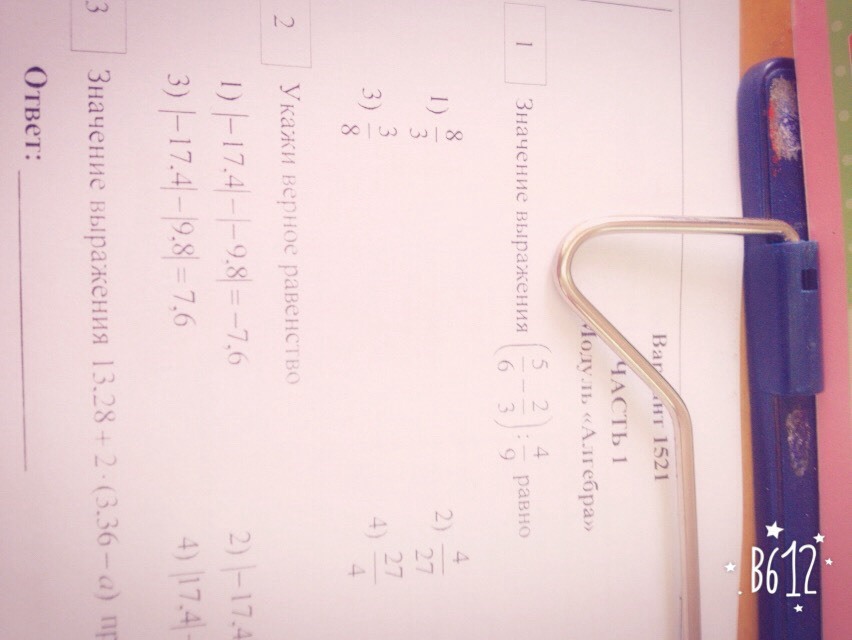 Вариант 1521
ЧАСТЬ 1
Модуль «Алгебра»
1 Значение выражения (5/6 − 2/3) : 4/9 равно
1) 8/3 2) 4/27
3) 3/8 4) 27/4
2 Укажи верное равенство
1) |−17,4|−|−9,8| = −7,6 2) |−17,4
3) |−17,4|−|9,8| = 7,6 4) |17,4|−
3 Значение выражения 13,28 + 2·(3,36 − a)
Ответ:
B612